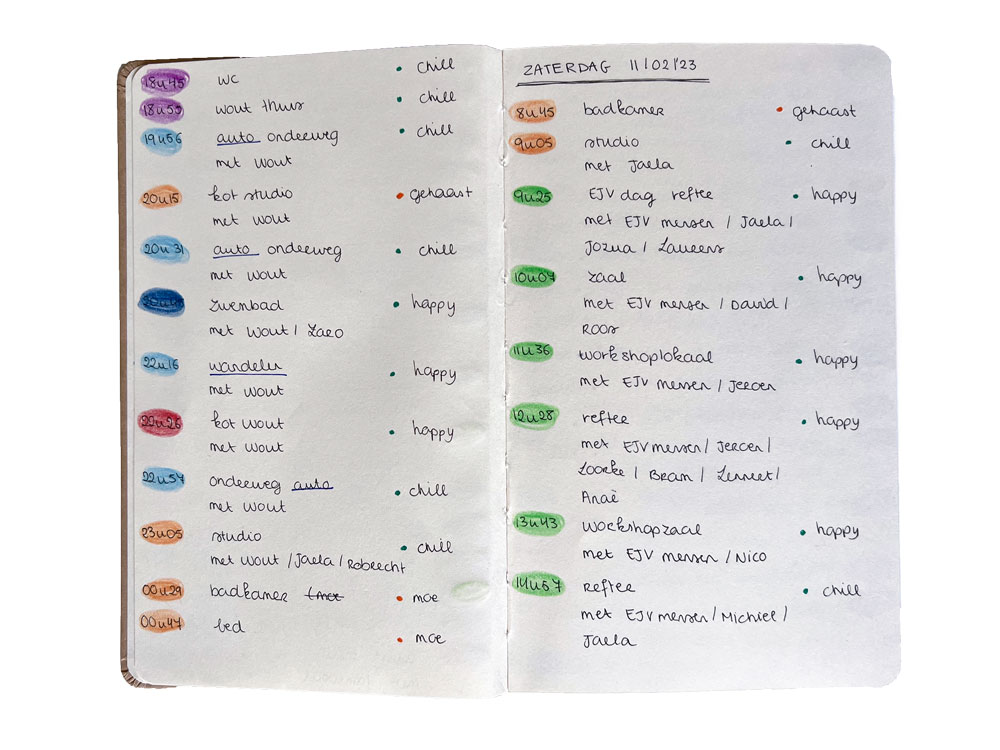 18u45 wc • chill
18u55 wout thuis • chill
19u56 auto onderweg • chill
met wout
20u15 kot studio • gehaast
met wout
20u31 auto onderweg • chill
met wout
zwembad • happy
met wout /
22u16 wandelen • happy
met wout
22u26 kot wout • happy
met wout
22u57 onderweg auto • chill
met wout
23u05 studio • chill
met wout / Jaela / Robrecht
00u29 badkamer • moe
00u47 bed • moe
ZATERDAG 11/02/'23
8u45 badkamer • gehaast
9u05 studio • chill
met Jaela
9u25 EJV dag refter • happy
met EJV mensen / Jaela /
Jozua / Laurens
10u07 zaal • happy
met EJV mensen / David /
Roos
11u36 workshoplokaal • happy
met EJV mensen / Jeroen
12u28 refter • happy
met EJV mensen / Jeroen /
Loorke / Bram / Lennert /
Anaë
13u43 workshopzaal • happy
met EJV mensen / Nico
14u57 refter • chill
met EJV mensen / Michiel /
Jaela